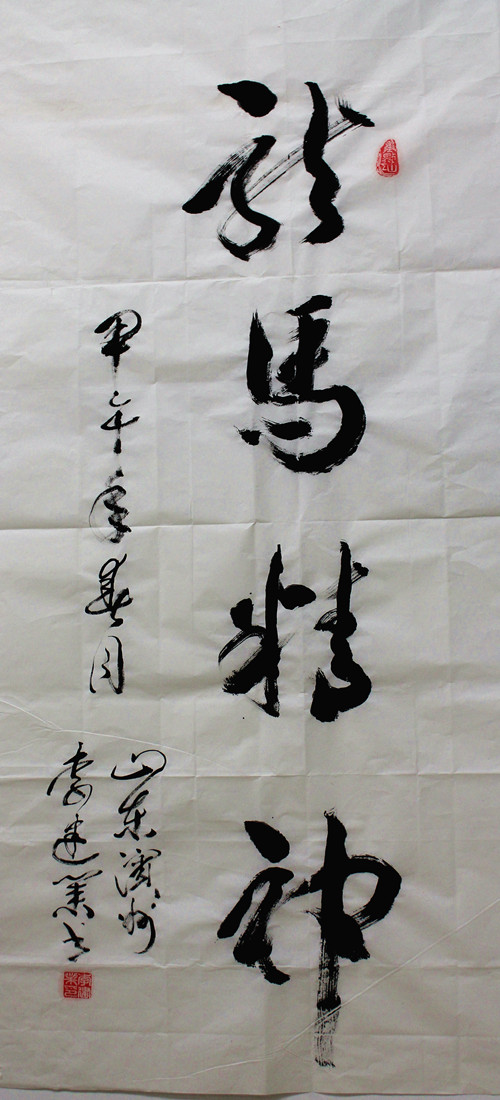 龍馬精神
甲午年春月
山东濱州
建業书